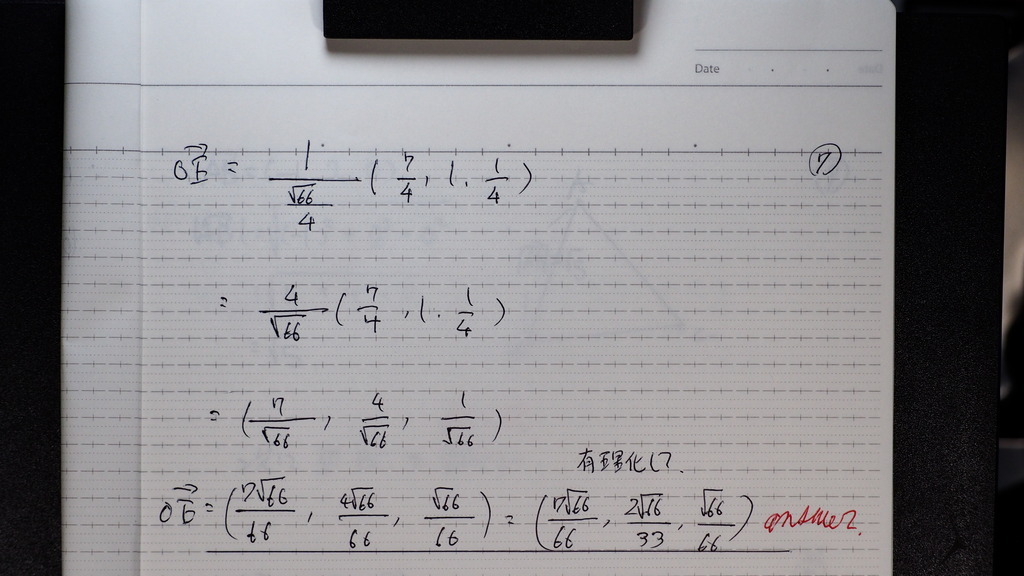 Date
⑦
→OE = 1/(√66/4) (7/4, 1, 1/4)
= 4/√66 (7/4, 1, 1/4)
= (7/√66, 4/√66, 1/√66)
有理化して、
→OE = (7√66/66, 4√66/66, √66/66) = (7√66/66, 2√66/33, √66/66) answer.